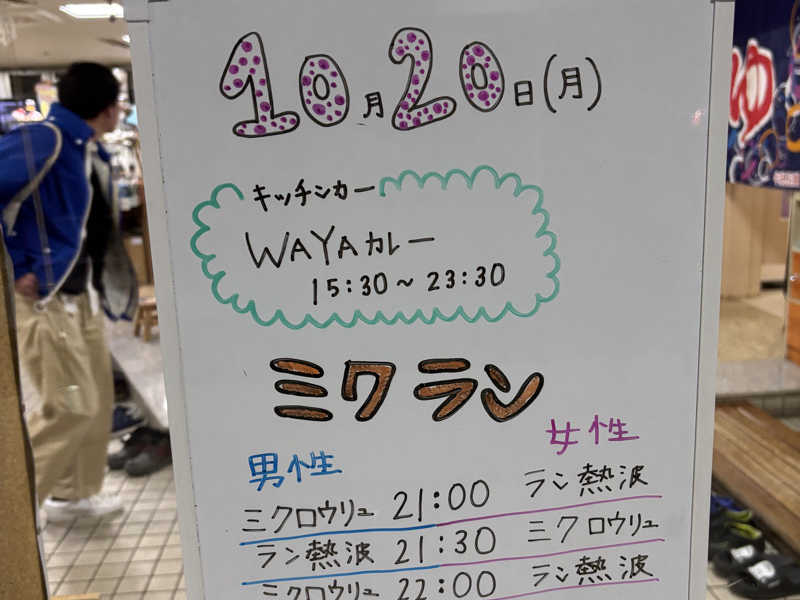 10月20日(月)
キッチンカー
WAYAカレー
15:30~23:30
ミクラン
男性 女性
ミクロウリュ 21:00 ラン熱波
ラン熱波 21:30 ミクロウリュ
ミクロウリュ 22:00 ラン熱波
ゆ